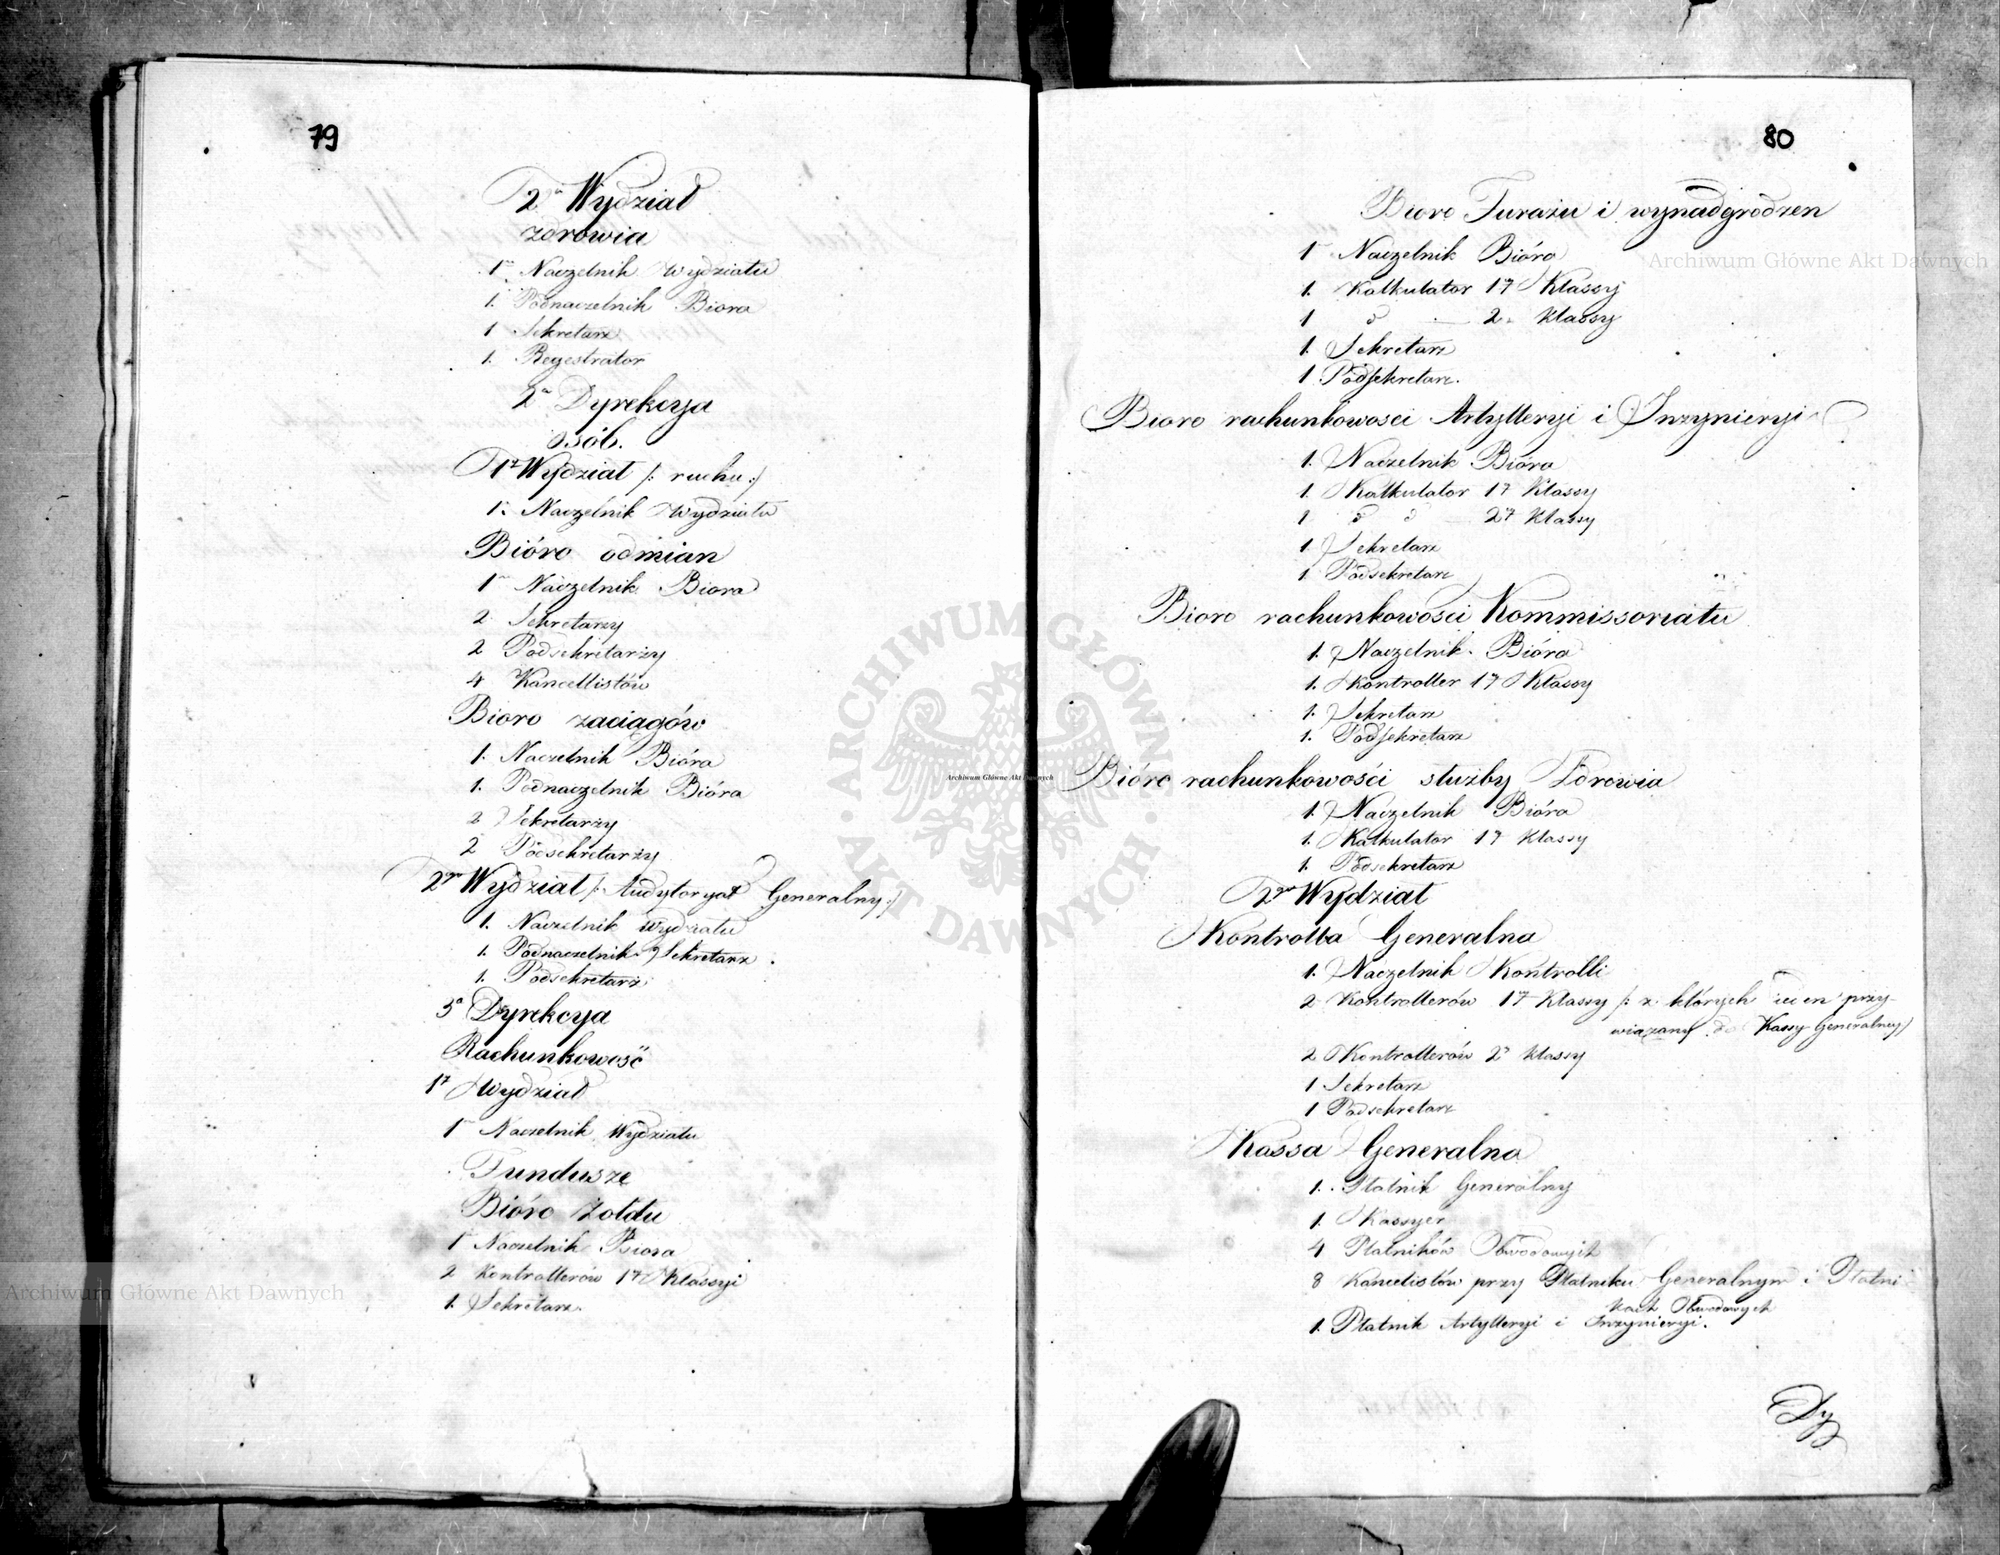 79
2n Wydział
zdrowia
1n Naczelnik Wydziału
1. Podnaczelnik Biora
1 Sekretarz
1. Regestrator
2a Dyrekcya
osób.
1y Wydział /: ruchu :/
1n Naczelnik Wydziału
Bióro odmian
1n Naczelnik Biora
2 Sekretarzy
2 Podsekretarzy
4 Kancellistów
Bioro zaciągów
1. Naczelnik Bióra
1. Podnaczelnik Bióra
2 Sekretarzy
2 Podsekretarzy
2gi Wydział /: Audytoryat Generalny :/
1. Naczelnik Wydziału
1. Podnaczelnik Sekretarz
1. Podsekretarz
3a Dyrekcya
Rachunkowość
1y Wydział
1n Naczelnik Wydziału
Fundusze
Bióro żołdu
1n Naczelnik Biora
2 Kontrollerów 1y Klassyi
1. Sekretarz.
80
Bioro Furażu i wynadgrodzen
1n Naczelnik Bióra
1. Kalkulator 1y Klassy
1 d — 2. klassy
1. Sekretarz
1. Podsekretarz.
Bioro rachunkowosci Artylleryi i Inzynieryi
1. Naczelnik Bióra
1. Kalkulator 1y Klassy
1 d d — 2y klassy
1. Sekretarz
1. Podsekretarz
Bioro rachunkowości Kommissoriatu
1. Naczelnik Bióra
1. Kontroller 1y Klassy
1. Sekretarz
1. Podsekretarz
Bióro rachunkowości służby Zdrowia
1. Naczelnik Bióra
1. Kalkulator 1y klassy
1. Podsekretarz
2gi Wydział
Kontrolla Generalna
1. Naczelnik Kontrolli
2 Kontrollerów 1y Klassy /: z których ieden przy-
wiązany do Kassy Generalney :/
2 Kontrollerów 2y klassy
1 Sekretarz
1 Podsekretarz
Kassa Generalna
1. Płatnik Generalny
1. Kassyer
4 Płatników Obwodowych
8 Kancelistów przy Płatniku Generalnym i Płatni
kach Obwodowych
1. Płatnik Artylleryi i Inzynieryi.
Dy
Archiwum Główne Akt Dawnych
Archiwum Główne Akt Dawnych
Archiwum Główne Akt Dawnych
ARCHIWUM GŁÓWNE AKT DAWNYCH